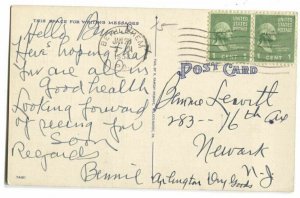 THIS SPACE FOR WRITING MESSAGES
Hello
Here's hoping
you are all in
Good health
Looking forward
of seeing you
Soon
Regards
Bennie
BETHLEHEM
PA
UNITED STATES
POSTAGE
1 CENT
UNITED STATES
POSTAGE
1 CENT
POST CARD
Leavitt
283—16th Ave
Newark
N-J
Arlington Dry Goods